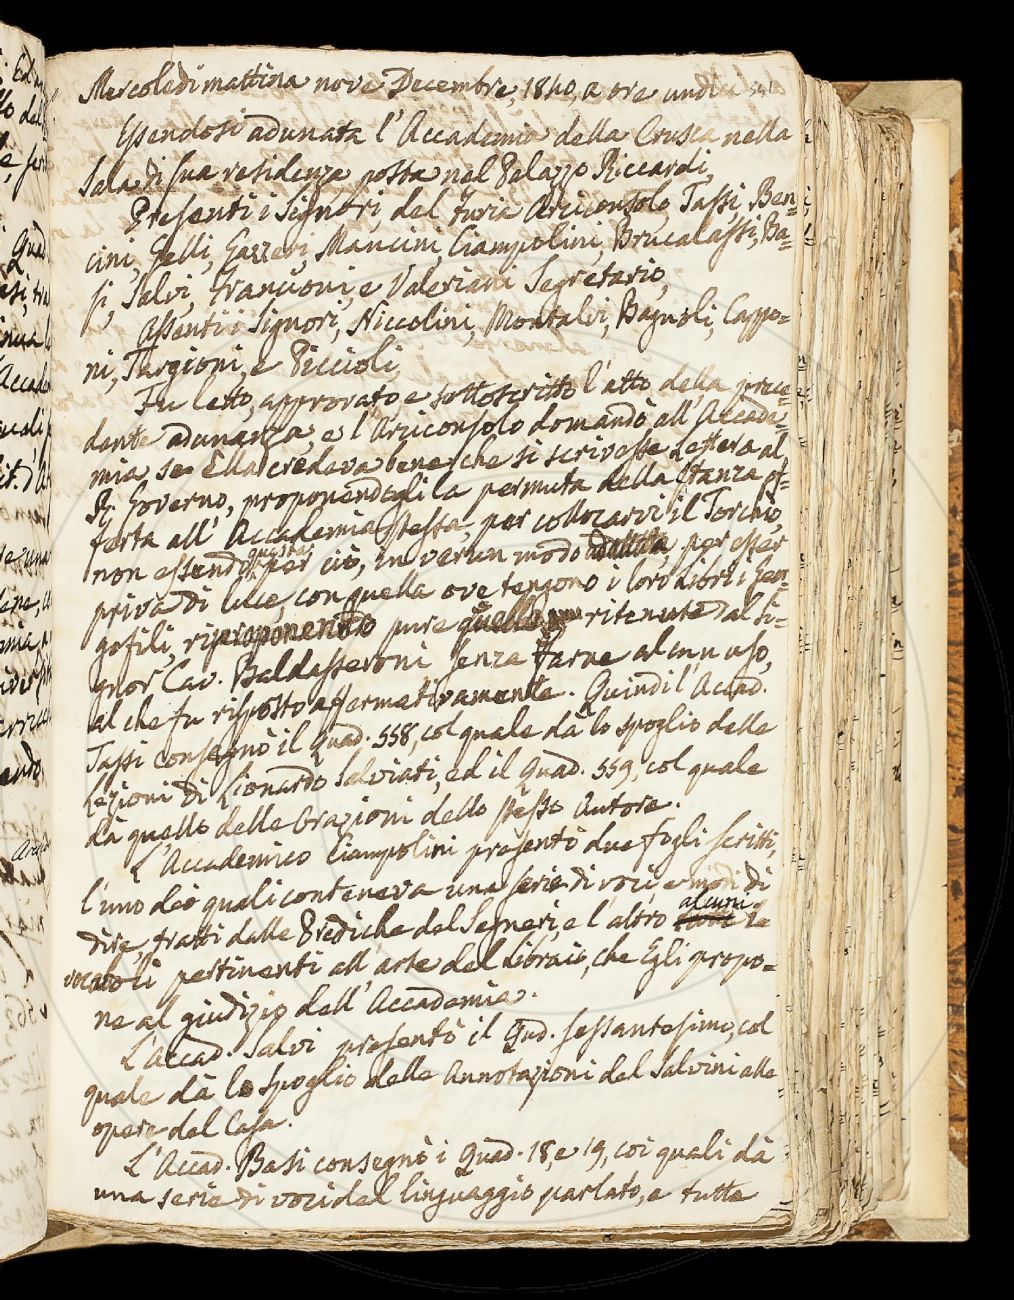 Mercoledì mattina nove Decembre, 1840, a ore undici
Essendosi adunata l'Accademia della Crusca nella
Sala di sua residenza posta nel Palazzo Riccardi,
Presenti i Signori, del Furia Arciconsolo, Tassi, Ben=
cini, Gelli, Gazzeri, Mancini, Ciampolini, Brucalassi, Ba=
si, Salvi, Francioni, e Valeriani Segretario,
Assenti i Signori, Niccolini, Montalvi, Bagnoli, Cappo=
ni, Targioni, e Piccioli,
Fu letto, approvato e sottoscritto l'atto della prece=
dente adunanza, e l'Arciconsolo domandò all'Accade=
mia se Ella credeva bene che si scrivesse Lettera al
R. Governo, proponendogli la permuta della Stanza of=
ferta all'Accademia stessa, per collocarvi il Torchio,
non essendo questa per ciò, in verun modo adattata, per esser
priva di luce, con quella ove tengono i loro Libri i Geor=
gofili, riproponendo pure quelle ritenute dal Si=
gnor Cav. Baldasseroni senza farne alcun uso,
al che fu risposto affermativamente. Quindi l'Accad.
Tassi consegnò il Quad. 558, col quale dà lo spoglio delle
Lezioni di Lionardo Salviati, ed il Quad. 559, col quale
dà quello delle Orazioni dello stesso Autore.
L'Accademico Ciampolini presentò due fogli scritti,
l'uno dei quali conteneva una serie di voci e modi di
dire, tratti dalle Prediche del Segneri, e l'altro alcuni
vocaboli pertinenti all'arte del Libraio, che Egli propo=
ne al giudizio dell'Accademia.
L'Accad. Salvi presentò il Qud. sessantesimo, col
quale dà lo spoglio delle Annotazioni del Salvini alle
opere del Casa.
L'Accad. Basi consegnò i Quad. 18, e 19, coi quali dà
una serie di voci del linguaggio parlato, e tutte